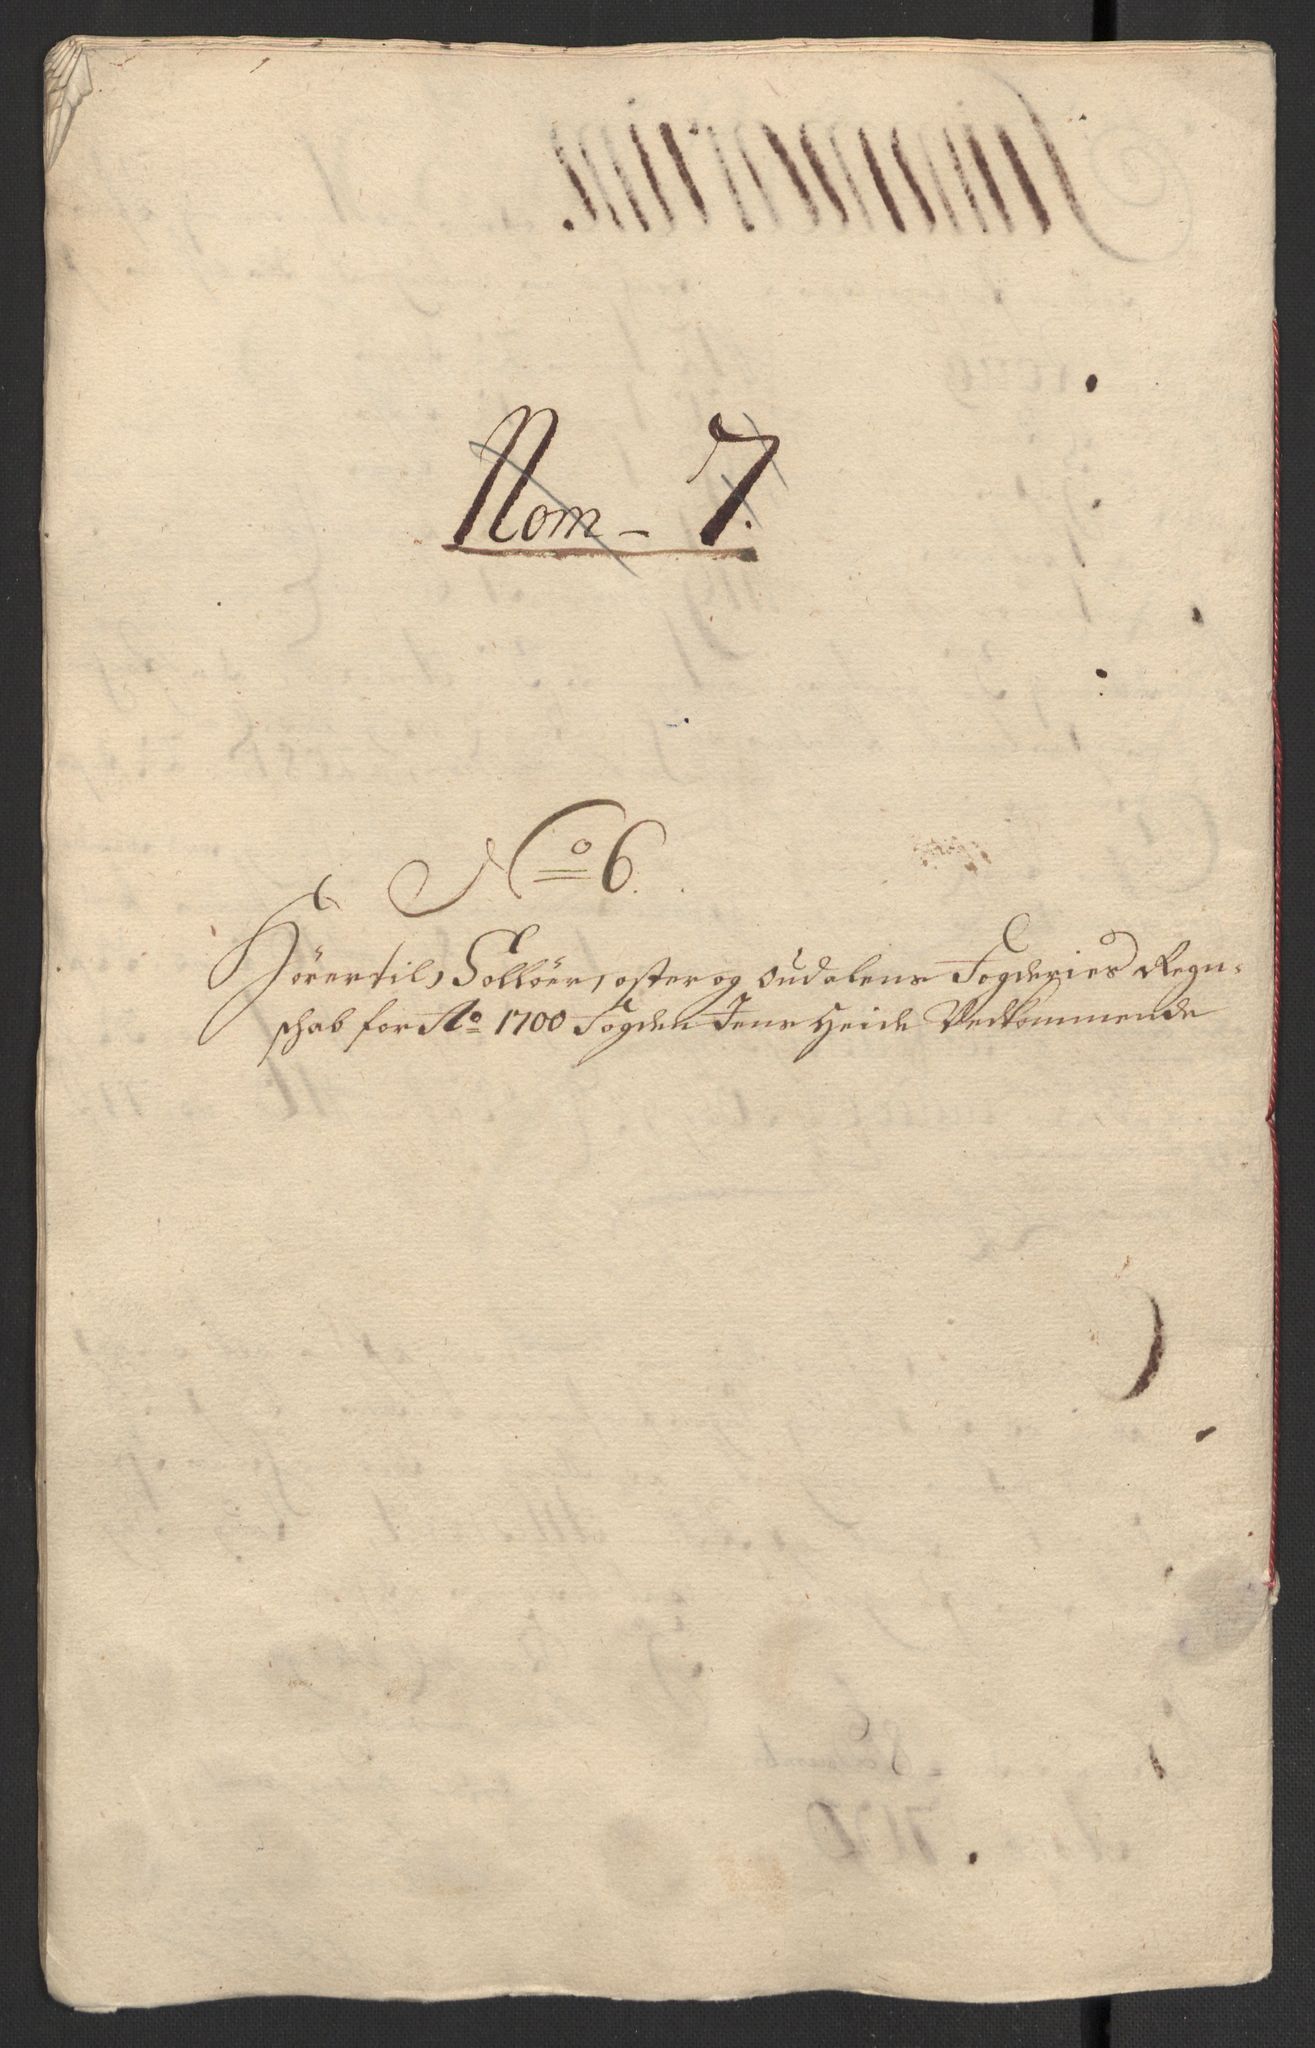 Nom - 7.
No 6.
Hörer til Sollöer, oster og Oudalens Fogderies Regn=
schab for Ao 1700 Fogden Jens Heide Vedkommende